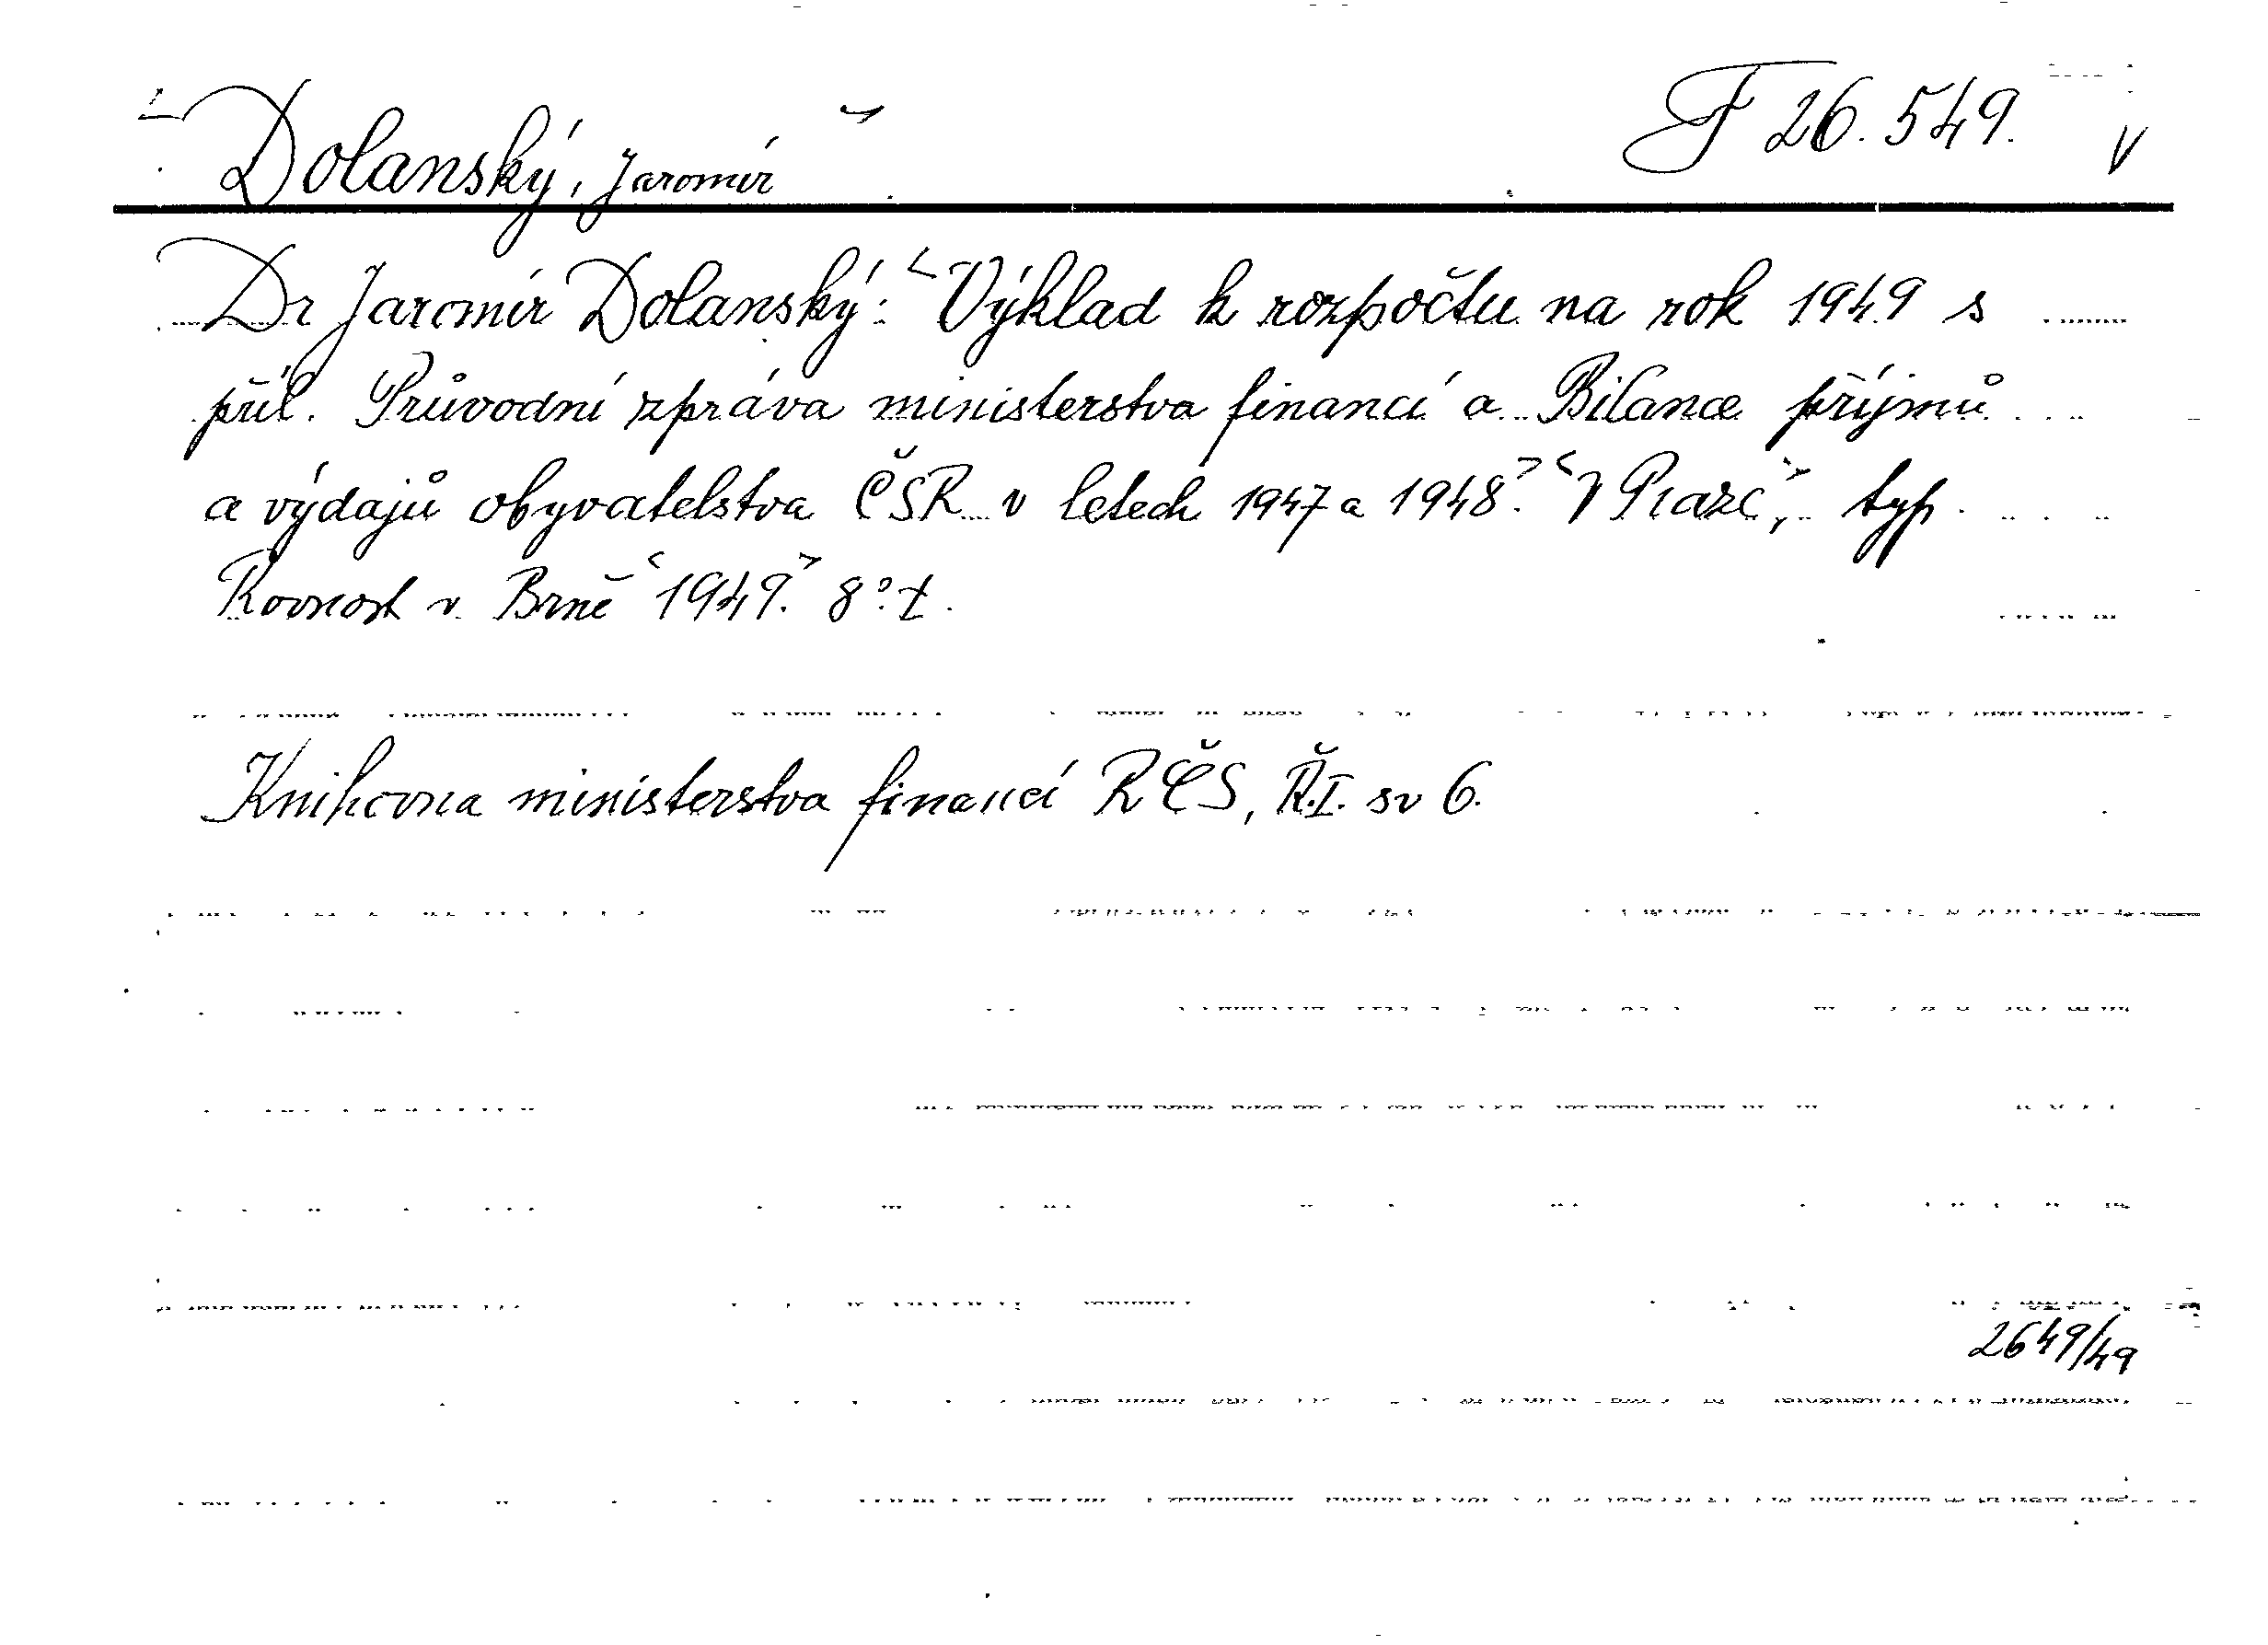 Dolanský, Jaromír F 26.549. V
Dr Jaromír Dolanský: <Výklad k rozpočtu na rok 1949 s
příl. Průvodní zpráva ministerstva financí a Bilance příjmů
a výdajů obyvatelstva ČSR v letech 1947 a 1948.> <V Praze,> typ.
Rovnost v Brně <1949.> 8°.
Knihovna ministerstva financí RČS, Ř.I. sv 6.
2649/49